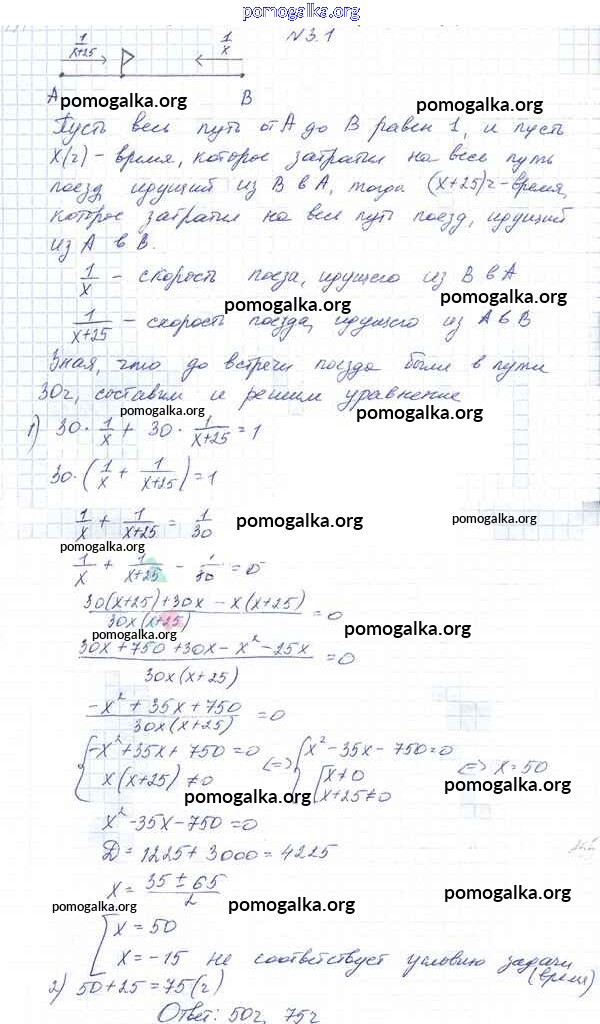 pomogalka.org
№3.1
1/(x+25) 1/x
A B
pomogalka.org pomogalka.org
Пусть весь путь от А до В равен 1, и пусть
х(ч) – время, которое затратил на весь путь
поезд, идущий из В в А, тогда (х+25)ч – время,
которое затратил на весь путь поезд, идущий
из А в В.
1/x – скорость поезда, идущего из В в А
pomogalka.org pomogalka.org
1/(x+25) – скорость поезда, идущего из А в В
Зная, что до встречи поезда были в пути
30ч, составим и решим уравнение
pomogalka.org pomogalka.org
1) 30 · 1/x + 30 · 1/(x+25) = 1
30 · (1/x + 1/(x+25)) = 1
1/x + 1/(x+25) = 1/30
pomogalka.org pomogalka.org
pomogalka.org
1/x + 1/(x+25) - 1/30 = 0
(30(x+25) + 30x - x(x+25))/(30x(x+25)) = 0
pomogalka.org pomogalka.org
(30x + 750 + 30x - x² - 25x)/(30x(x+25)) = 0
(-x² + 35x + 750)/(30x(x+25)) = 0
{-x² + 35x + 750 = 0 <=> {x² - 35x - 750 = 0 <=> x = 50
x(x+25) ≠ 0 [x ≠ 0
x+25 ≠ 0
pomogalka.org pomogalka.org
x² - 35x - 750 = 0
D = 1225 + 3000 = 4225
x = (35 ± 65)/2
pomogalka.org pomogalka.org pomogalka.org
[x = 50
x = -15 не соответствует условию задачи
(время)
2) 50 + 25 = 75 (ч)
Ответ: 50ч, 75ч